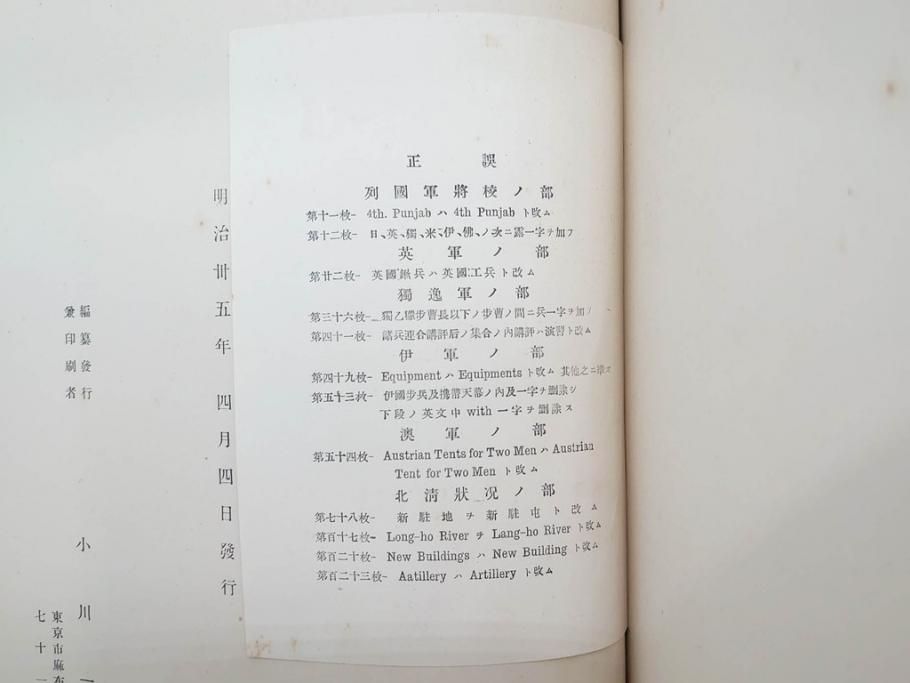 正誤
列國軍將校ノ部
第十一枚- 4th. Punjab ハ 4th Punjab ト改ム
第十二枚- 日、英、獨、米、伊、佛、ノ次ニ露一字ヲ加フ
英軍ノ部
第廿二枚- 英國鍬兵ハ英國工兵ト改ム
獨逸軍ノ部
第三十六枚- 獨乙騾步曹長以下ノ步曹ノ間ニ兵一字ヲ加フ
第四十一枚- 諸兵連合講評后ノ集合ノ內講評ハ演習ト改ム
伊軍ノ部
第四十九枚- Equipment ハ Equipments ト改ム 其他之ニ準ス
第五十三枚- 伊國步兵及携帶天幕ノ內及一字ヲ刪除シ
下段ノ英文中 with 一字ヲ刪除ス
澳軍ノ部
第五十四枚- Austrian Tents for Two Men ハ Austrian
Tent for Two Men ト改ム
北淸狀況ノ部
第七十八枚- 新駐地ヲ新駐屯ト改ム
第百十七枚- Long-ho River ヲ Lang-ho River ト改ム
第百二十枚- New Buildings ハ New Building ト改ム
第百二十三枚- Aatillery ハ Artillery ト改ム
明治卅五年四月四日發行
編纂發行
兼印刷者
小川一
東京市麻布
七十一